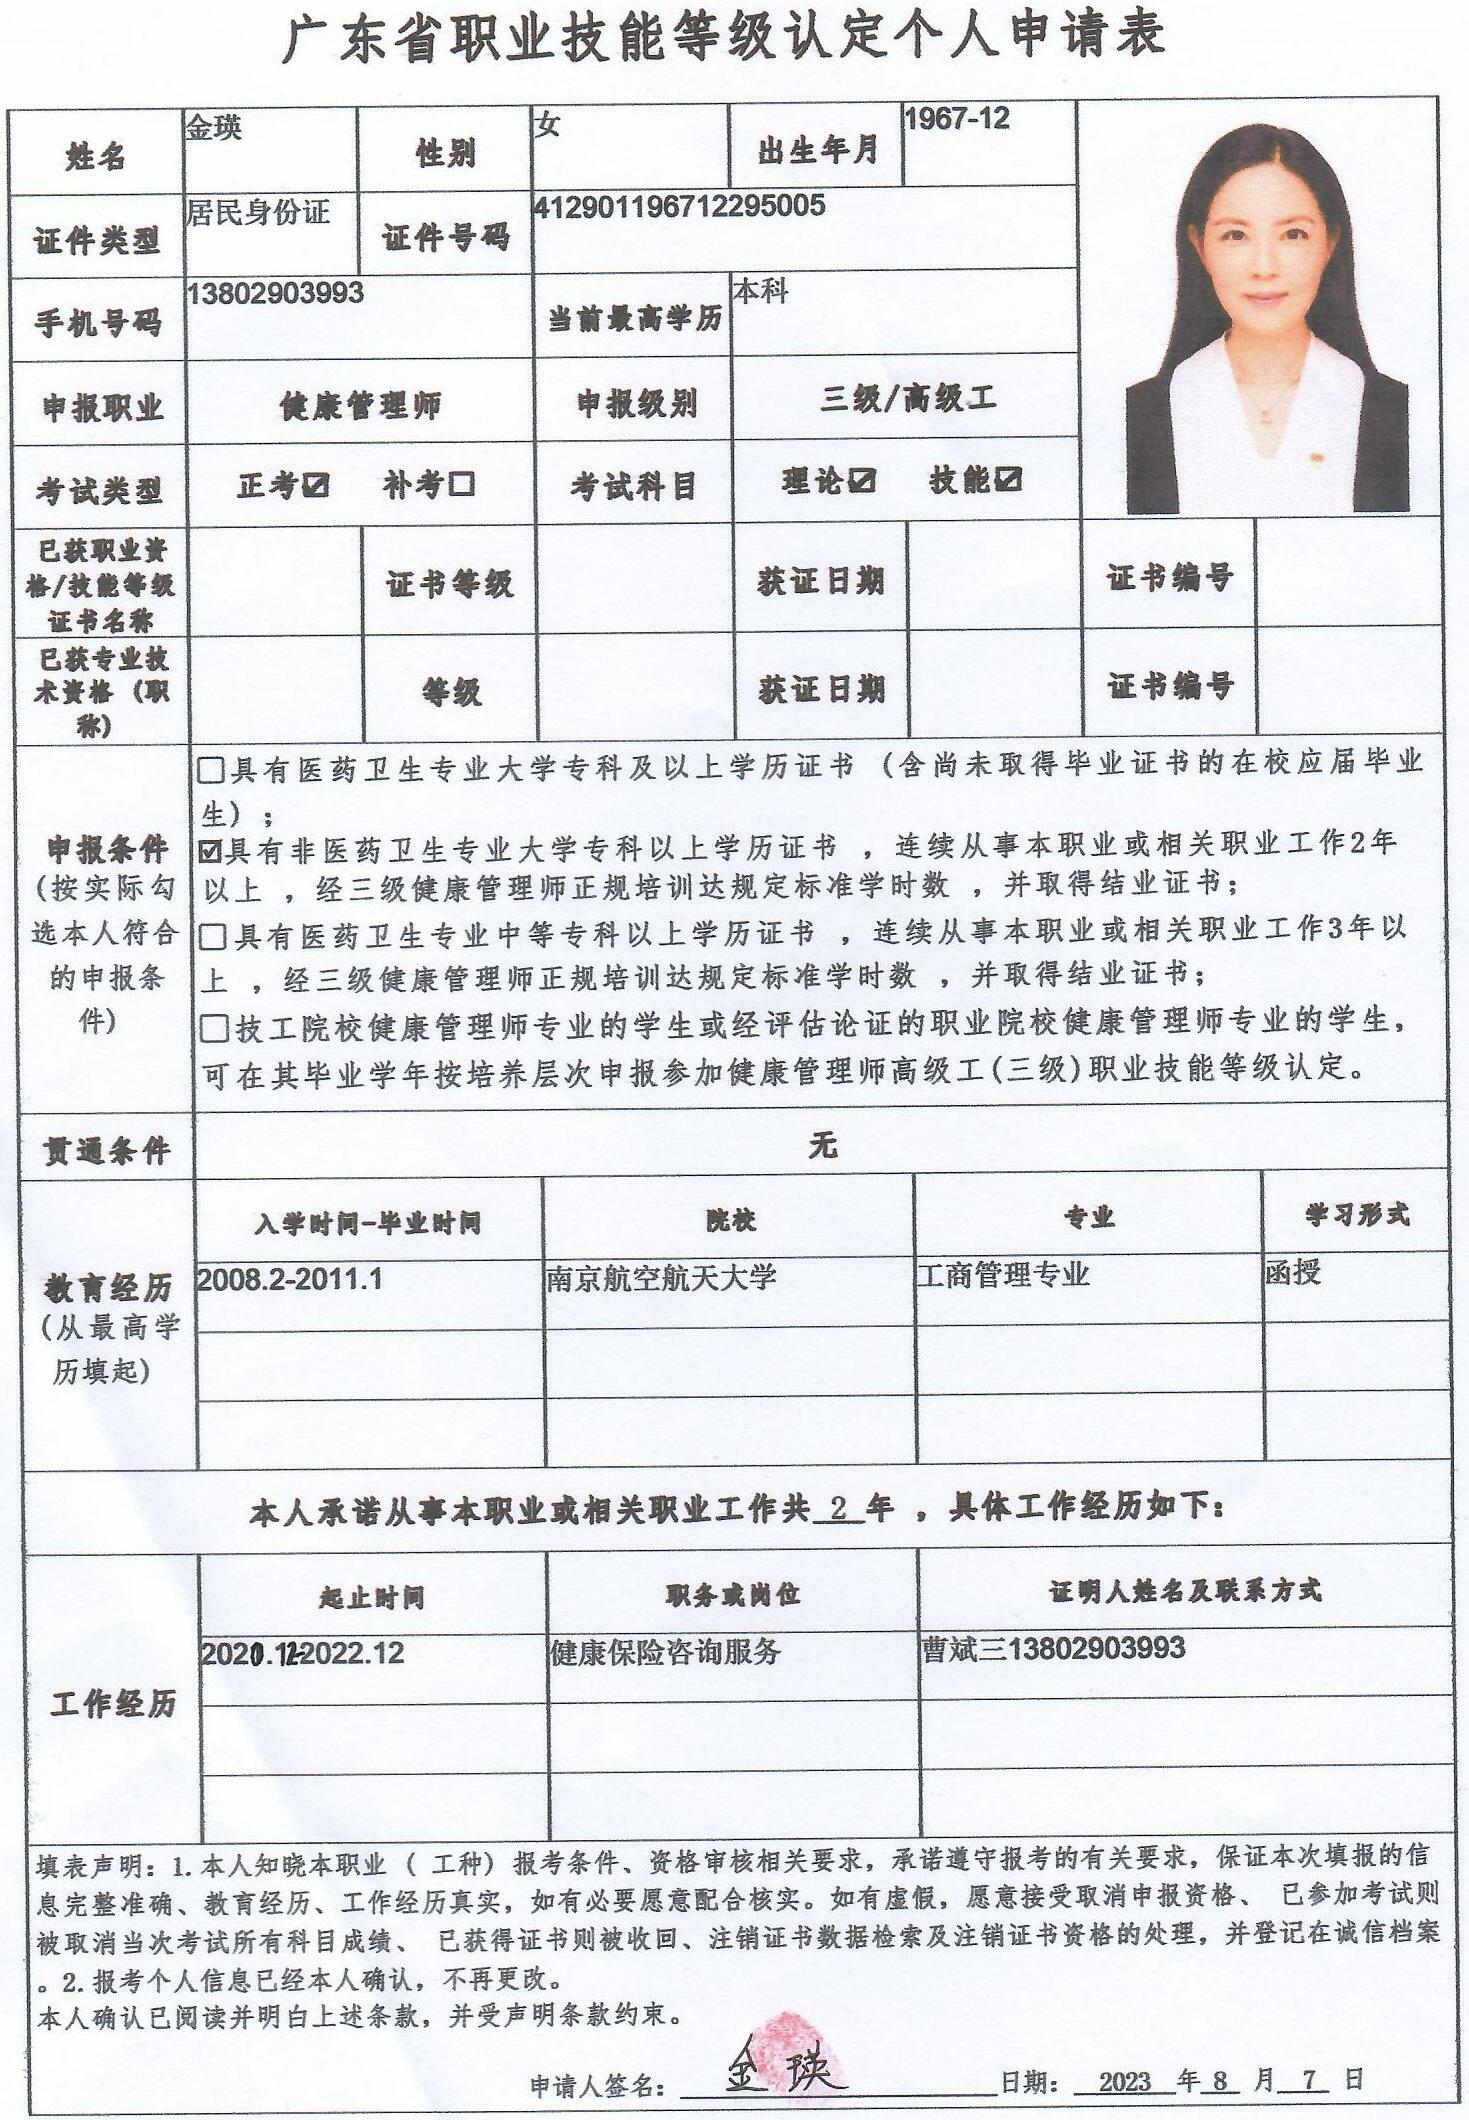 广东省职业技能等级认定个人申请表
姓名 金瑛 性别 女 出生年月 1967-12
证件类型 居民身份证 证件号码 412901196712295005
手机号码 13802903993 当前最高学历 本科
申报职业 健康管理师 申报级别 三级/高级工
考试类型 正考☑ 补考☐ 考试科目 理论☑ 技能☑
已获职业资
格/技能等级 证书等级 获证日期 证书编号
证书名称
已获专业技
术资格（职 等级 获证日期 证书编号
称）
申报条件
（按实际勾
选本人符合
的申报条
件）
☐具有医药卫生专业大学专科及以上学历证书（含尚未取得毕业证书的在校应届毕业
生）；
☑具有非医药卫生专业大学专科以上学历证书，连续从事本职业或相关职业工作2年
以上，经三级健康管理师正规培训达规定标准学时数，并取得结业证书；
☐具有医药卫生专业中等专科以上学历证书，连续从事本职业或相关职业工作3年以
上，经三级健康管理师正规培训达规定标准学时数，并取得结业证书；
☐技工院校健康管理师专业的学生或经评估论证的职业院校健康管理师专业的学生，
可在其毕业学年按培养层次申报参加健康管理师高级工(三级)职业技能等级认定。
贯通条件 无
教育经历
（从最高学
历填起）
入学时间-毕业时间 院校 专业 学习形式
2008.2-2011.1 南京航空航天大学 工商管理专业 函授
本人承诺从事本职业或相关职业工作共 2 年，具体工作经历如下：
工作经历
起止时间 职务或岗位 证明人姓名及联系方式
-2022.12 健康保险咨询服务 曹斌三13802903993
填表声明：1.本人知晓本职业（工种）报考条件、资格审核相关要求，承诺遵守报考的有关要求，保证本次填报的信
息完整准确、教育经历、工作经历真实，如有必要愿意配合核实。如有虚假，愿意接受取消申报资格、 已参加考试则
被取消当次考试所有科目成绩、 已获得证书则被收回、注销证书数据检索及注销证书资格的处理，并登记在诚信档案
。2.报考个人信息已经本人确认，不再更改。
本人确认已阅读并明白上述条款，并受声明条款约束。
申请人签名： 金瑛 日期： 2023 年 8 月 7 日